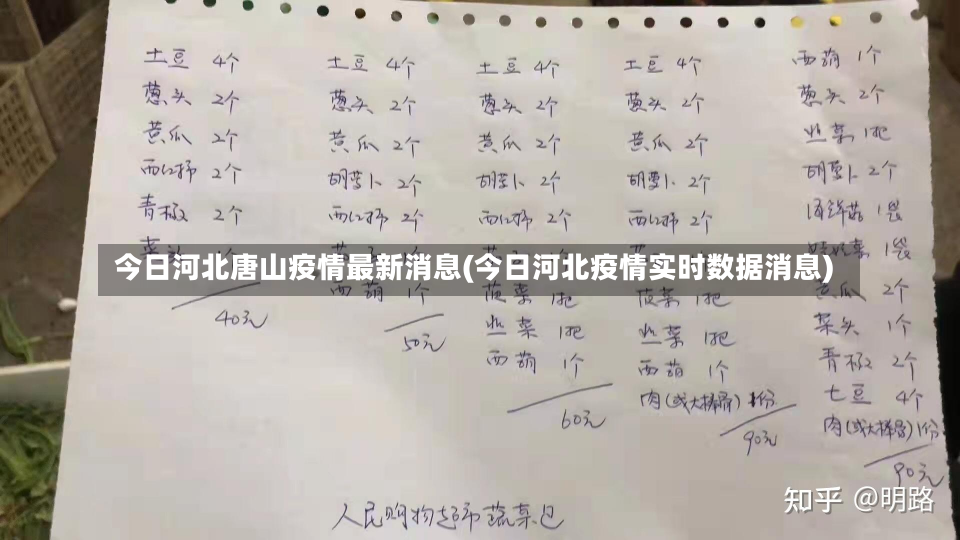 土豆 4个
葱头 2个
黄瓜 2个
西红柿 2个
青椒 2个
40元
土豆 4个
葱头 2个
黄瓜 2个
胡萝卜 2个
西红柿 2个
西葫 1个
50元
土豆 4个
葱头 2个
黄瓜 2个
胡萝卜 2个
西红柿 2个
菠菜 1把
韭菜 1把
西葫 1个
60元
土豆 4个
葱头 2个
黄瓜 2个
胡萝卜 2个
西红柿 2个
菠菜 1把
韭菜 1把
西葫 1个
肉(或大棒骨) 1份
90元
西葫 1个
葱头 2个
韭菜 1把
胡萝卜 2个
海鲜菇 1袋
娃娃菜 1袋
黄瓜 2个
菜头 1个
青椒 2个
土豆 4个
肉(或大棒骨) 1份
90元
今日河北唐山疫情最新消息(今日河北疫情实时数据消息)
人民购物超市蔬菜包
知乎 @明路